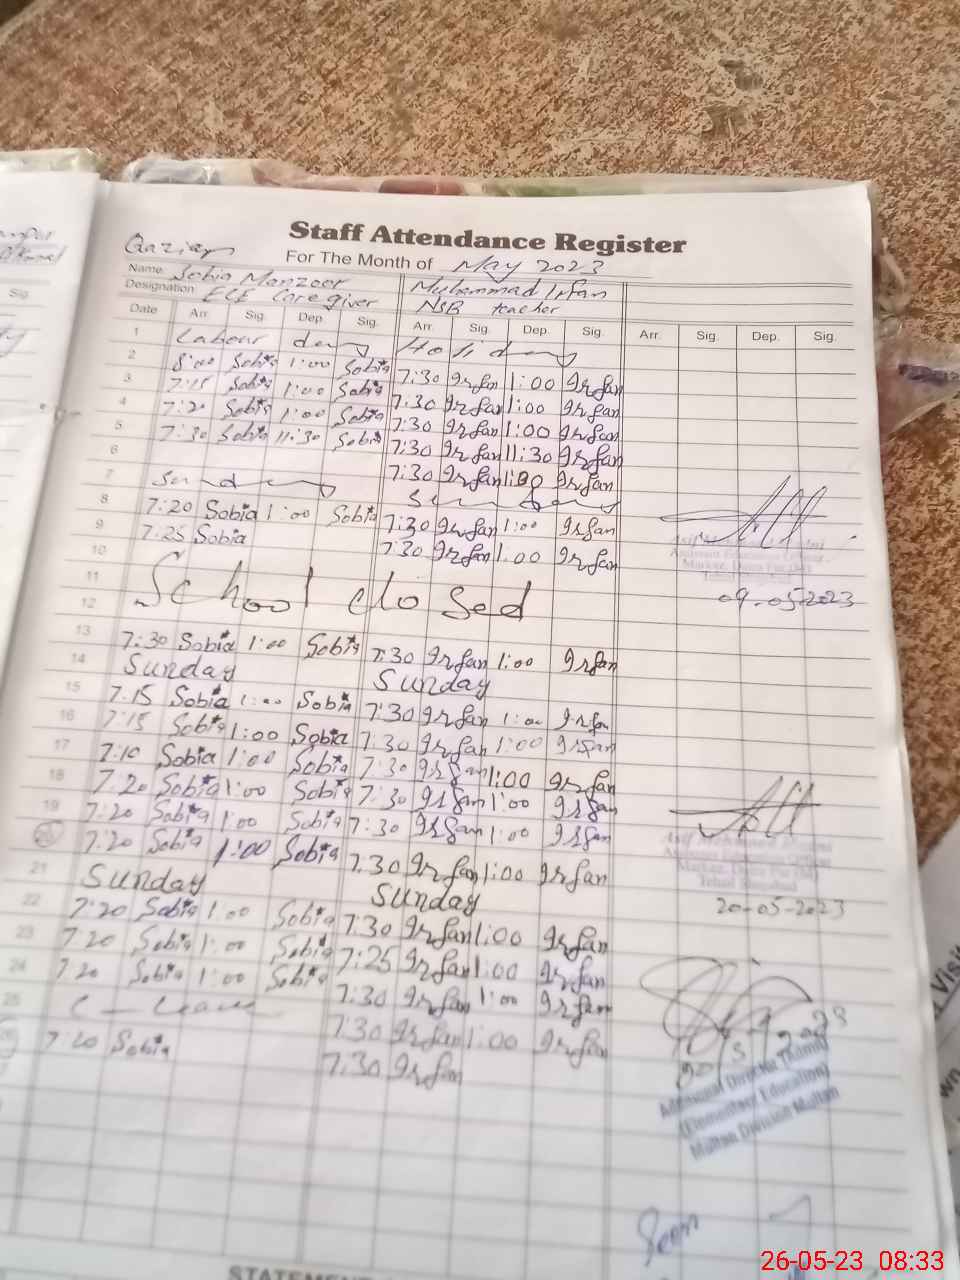 Staff Attendance Register
For The Month of May 2023
Name Sobia Manzoor Muhammad Irfan
Designation ECE Care giver NSB teacher
Date Arr. Sig. Dep. Sig. Arr. Sig. Dep. Sig. Arr. Sig. Dep. Sig.
1 Labour day Holiday
2 8:00 Sobia 1:00 Sobia 7:30 Irfan 1:00 Irfan
3 7:15 Sobia 1:00 Sobia 7:30 Irfan 1:00 Irfan
4 7:20 Sobia 1:00 Sobia 7:30 Irfan 1:00 Irfan
5 7:30 Sobia 11:30 Sobia 7:30 Irfan 11:30 Irfan
6 7:30 Irfan Irfan
7 Sunday Sunday
8 7:20 Sobia 1:00 Sobia 7:30 Irfan 1:00 Irfan
9 7:25 Sobia 7:30 Irfan 1:00 Irfan
10
11 School closed
12
09-05-2023
13 7:30 Sobia 1:00 Sobia 7:30 Irfan 1:00 Irfan
14 Sunday Sunday
15 7:15 Sobia 1:00 Sobia 7:30 Irfan 1:00 Irfan
16 7:15 Sobia 1:00 Sobia 7:30 Irfan 1:00 Irfan
17 7:10 Sobia 1:00 Sobia 7:30 Irfan 1:00 Irfan
18 7:20 Sobia 1:00 Sobia 7:30 Irfan 1:00 Irfan
19 7:20 Sobia 1:00 Sobia 7:30 Irfan 1:00 Irfan
20 7:20 Sobia 1:00 Sobia 7:30 Irfan 1:00 Irfan
21 Sunday Sunday
20-05-2023
22 7:20 Sobia 1:00 Sobia 7:30 Irfan 1:00 Irfan
23 7:20 Sobia 1:00 Sobia 7:25 Irfan 1:00 Irfan
24 7:20 Sobia 1:00 Sobia 7:30 Irfan 1:00 Irfan
25 C-Leave 7:30 Irfan 1:00 Irfan
7:20 Sobia 7:30 Irfan
Additional Director (Admn)
(Elementary Education)
Multan Division Multan
Seen
STATEMENT
26-05-23 08:33